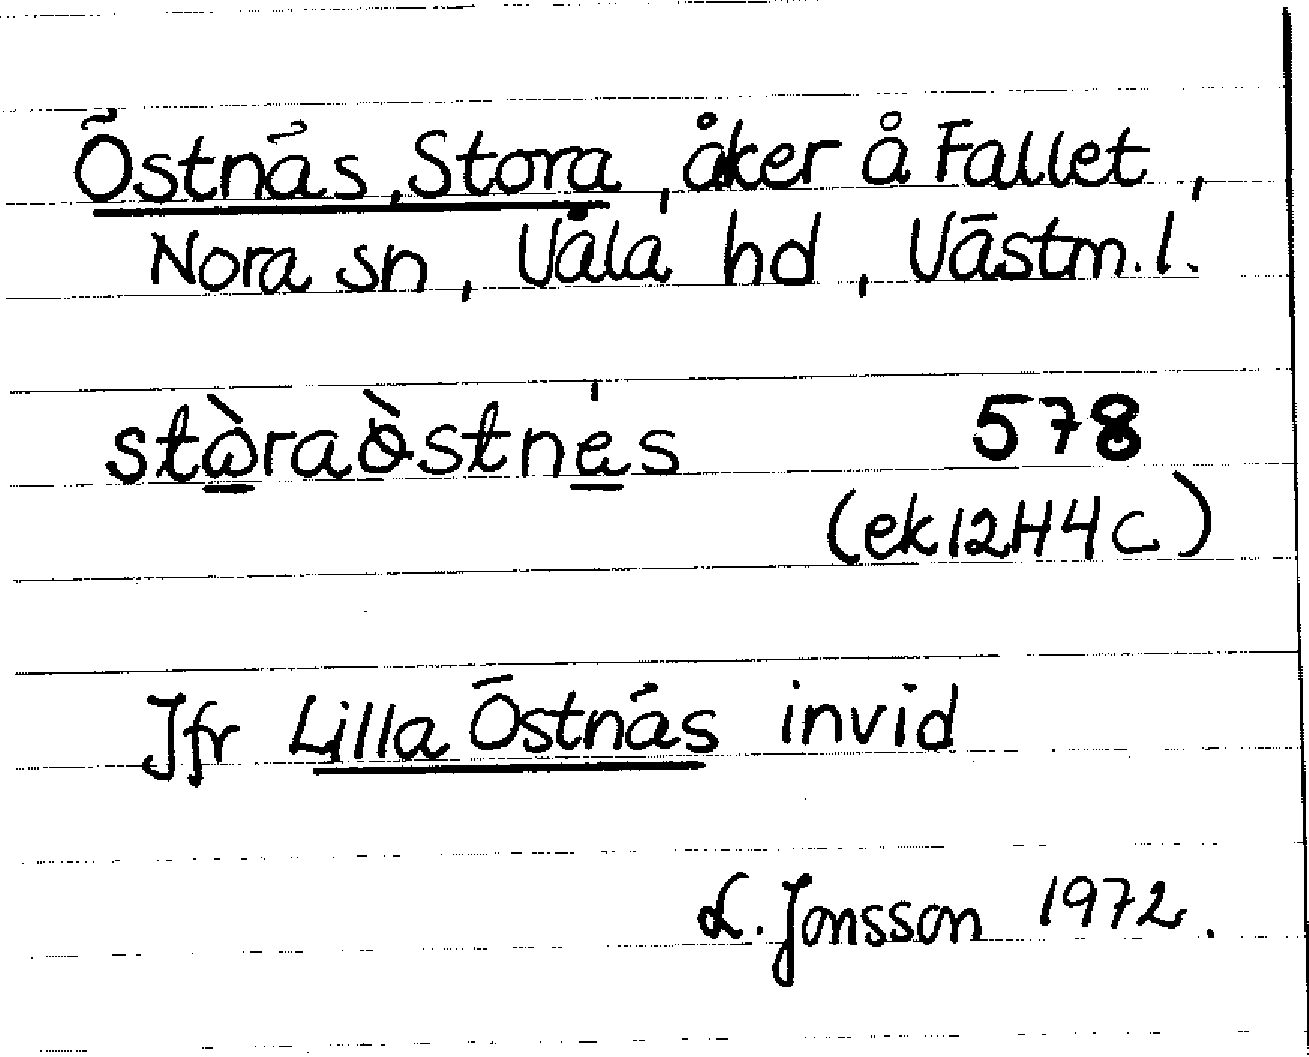 Östnäs, Stora, åker å Fallet,
Nora sn, Våla hd, Västm. l.
stòraòstnés 578
(ek 12H4c)
Jfr Lilla Östnäs invid
L. Jonsson 1972.